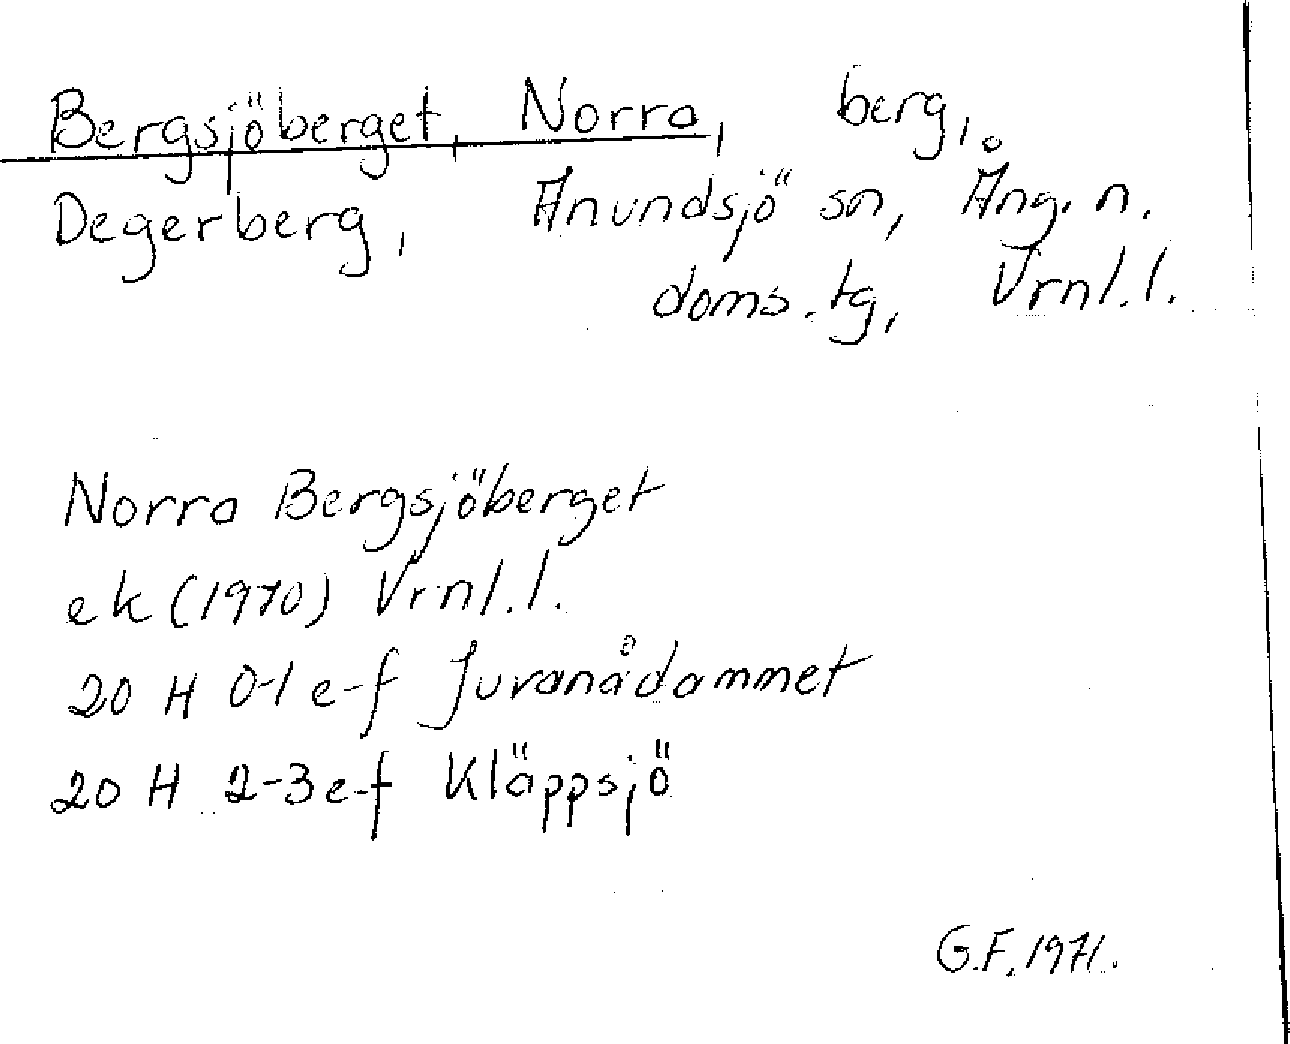 Bergsjöberget, Norra, berg,
Degerberg, Anundsjö sn, Ång. n.
doms. tg, Vrnl. l.
Norra Bergsjöberget
ek (1970) Vrnl. l.
20 H 0-1 e-f Juvanådammet
20 H 2-3 e-f Kläppsjö
G.F. 1971.